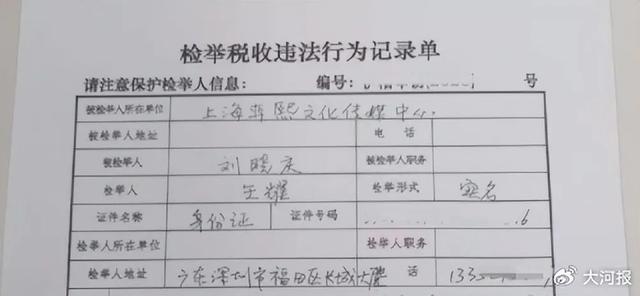 检举税收违法行为记录单
请注意保护检举人信息： 编号： 号
被检举人所在单位 上海 熙文化传媒中心
被检举人地址 电 话
被检举人 刘晓庆 被检举人职务
检举人 王耀 检举形式 实名
证件名称 身份证 证件号码 6
检举人所在单位 检举人职务
检举人地址 广东深圳市福田区长城大 话 133
大河报